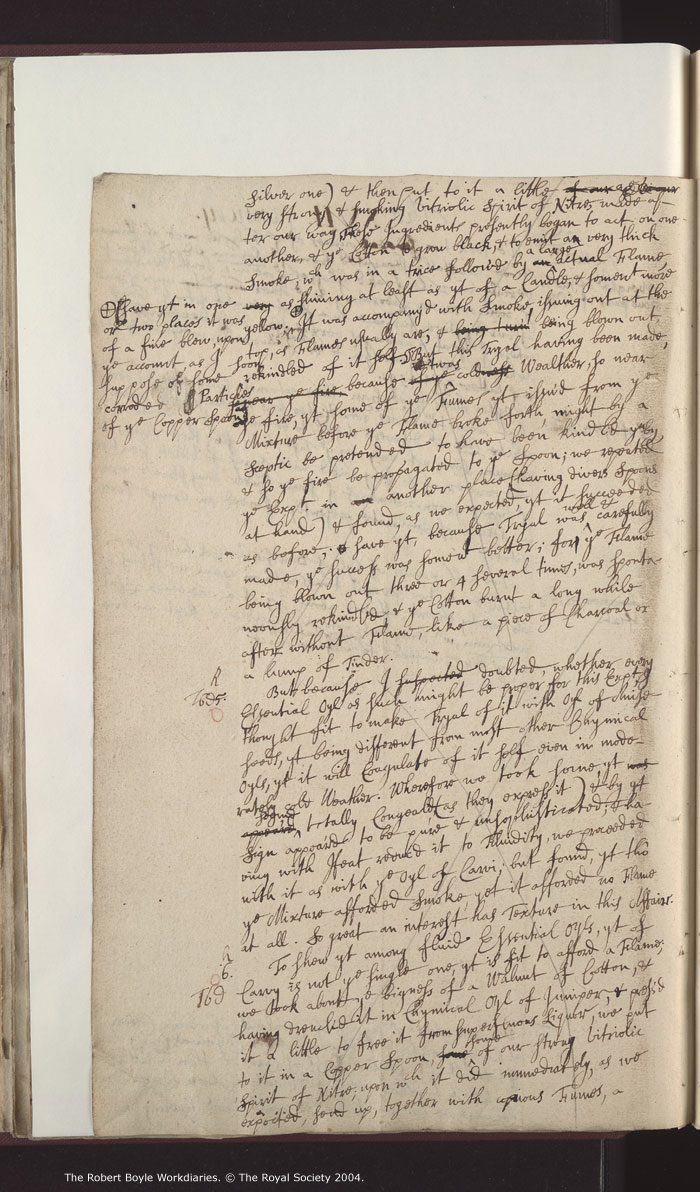 Silver one) & then put to it a little of our
very strong & smoking vitriolic Spirit of Nitre made af-
ter our way, These Ingredients presently began to act on one
another, & ye Cotton to grow black, & to emit an very thick
Smoke, wch was in a trice followed by an a large actual Flame
very as shining at least as yt of a Candle, & somewt more
yellow. It was accompany'd with Smoke, issuing out at the
top, as Flames usually are, & being turn being blown out
soon rekindled of it self. But this Tryal having been made,
near ye fire because it was cold Weather, so near
ye fire, yt some of ye Fumes yt issu'd from ye
Mixture before ye Flame broke forth might by a
Sceptic be pretended to have been kindled yrby,
& so ye fire be propagated to ye Spoon; we repeated
ye Expt in an another place (having divers Spoons
at hand) & found, as we expected, yt it succeeded
as before; save yt, because Tryal was well & carefully
made, ye success was somewt better; for ye Flame
being blown out three or 4 several times, was sponta-
neously rekindled & ye Cotton burnt a long while
after without Flame, like a piece of Charcoal or
a lump of Tinder.
⊕ save yt in one
or two places it was
of a fine blew, upon
ye account, as I
suppose of some
corroded Particles
of ye Copper Spoon
But because I suspected doubted, whether every
Essential Oyl as such might be proper for this Expt, I
thought fit to make Tryal of it with Oyl of Anise-
seeds, yt being different from most other Chymical
Oyls, yt it will Coagulate of it self even in mode-
rately cold Weather. Wherefore we took some, yt was
appeard totally Congeald (as they express it) & by yt
Sign appeard to be pure & unsophisticated; & ha-
ving with Heat reduc'd it to Fluidity, we proceeded
with it as with ye Oyl of Carvi; but found, yt tho
ye Mixture afforded Smoke, yet it afforded no Flame
at all. So great an interest has Texture in this Affair.
To shew yt among fluid Essential Oyls, yt of
Carvy is not ye single one, yt is fit to afford a Flame;
we took about ye bigness of a Walnut of Cotton, &
having drench'd it in Chymical Oyl of Juniper, & press'd
it a little to free it from superfluous Liquor, we put
to it in a Copper Spoon, some of our strong vitriolic
Spirit of Nitre; upon wch it did immediately, as we
expected, send up, together with Fumes, a
The Robert Boyle Workdiaries. © The Royal Society 2004.